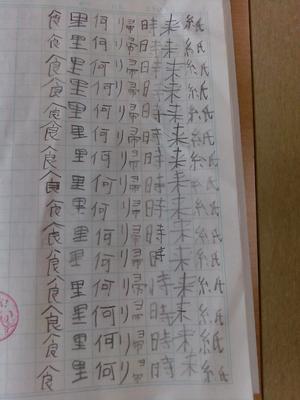 紙紙紙紙紙紙紙紙紙紙紙紙紙紙紙
来来来来来来来来来来来来来来来
時時時時時時時時時時時時時時時
帰帰帰帰帰帰帰帰帰帰帰帰帰帰帰
何何何何何何何何何何何何何何何
里里里里里里里里里里里里里里里
食食食食食食食食食食食食食食食